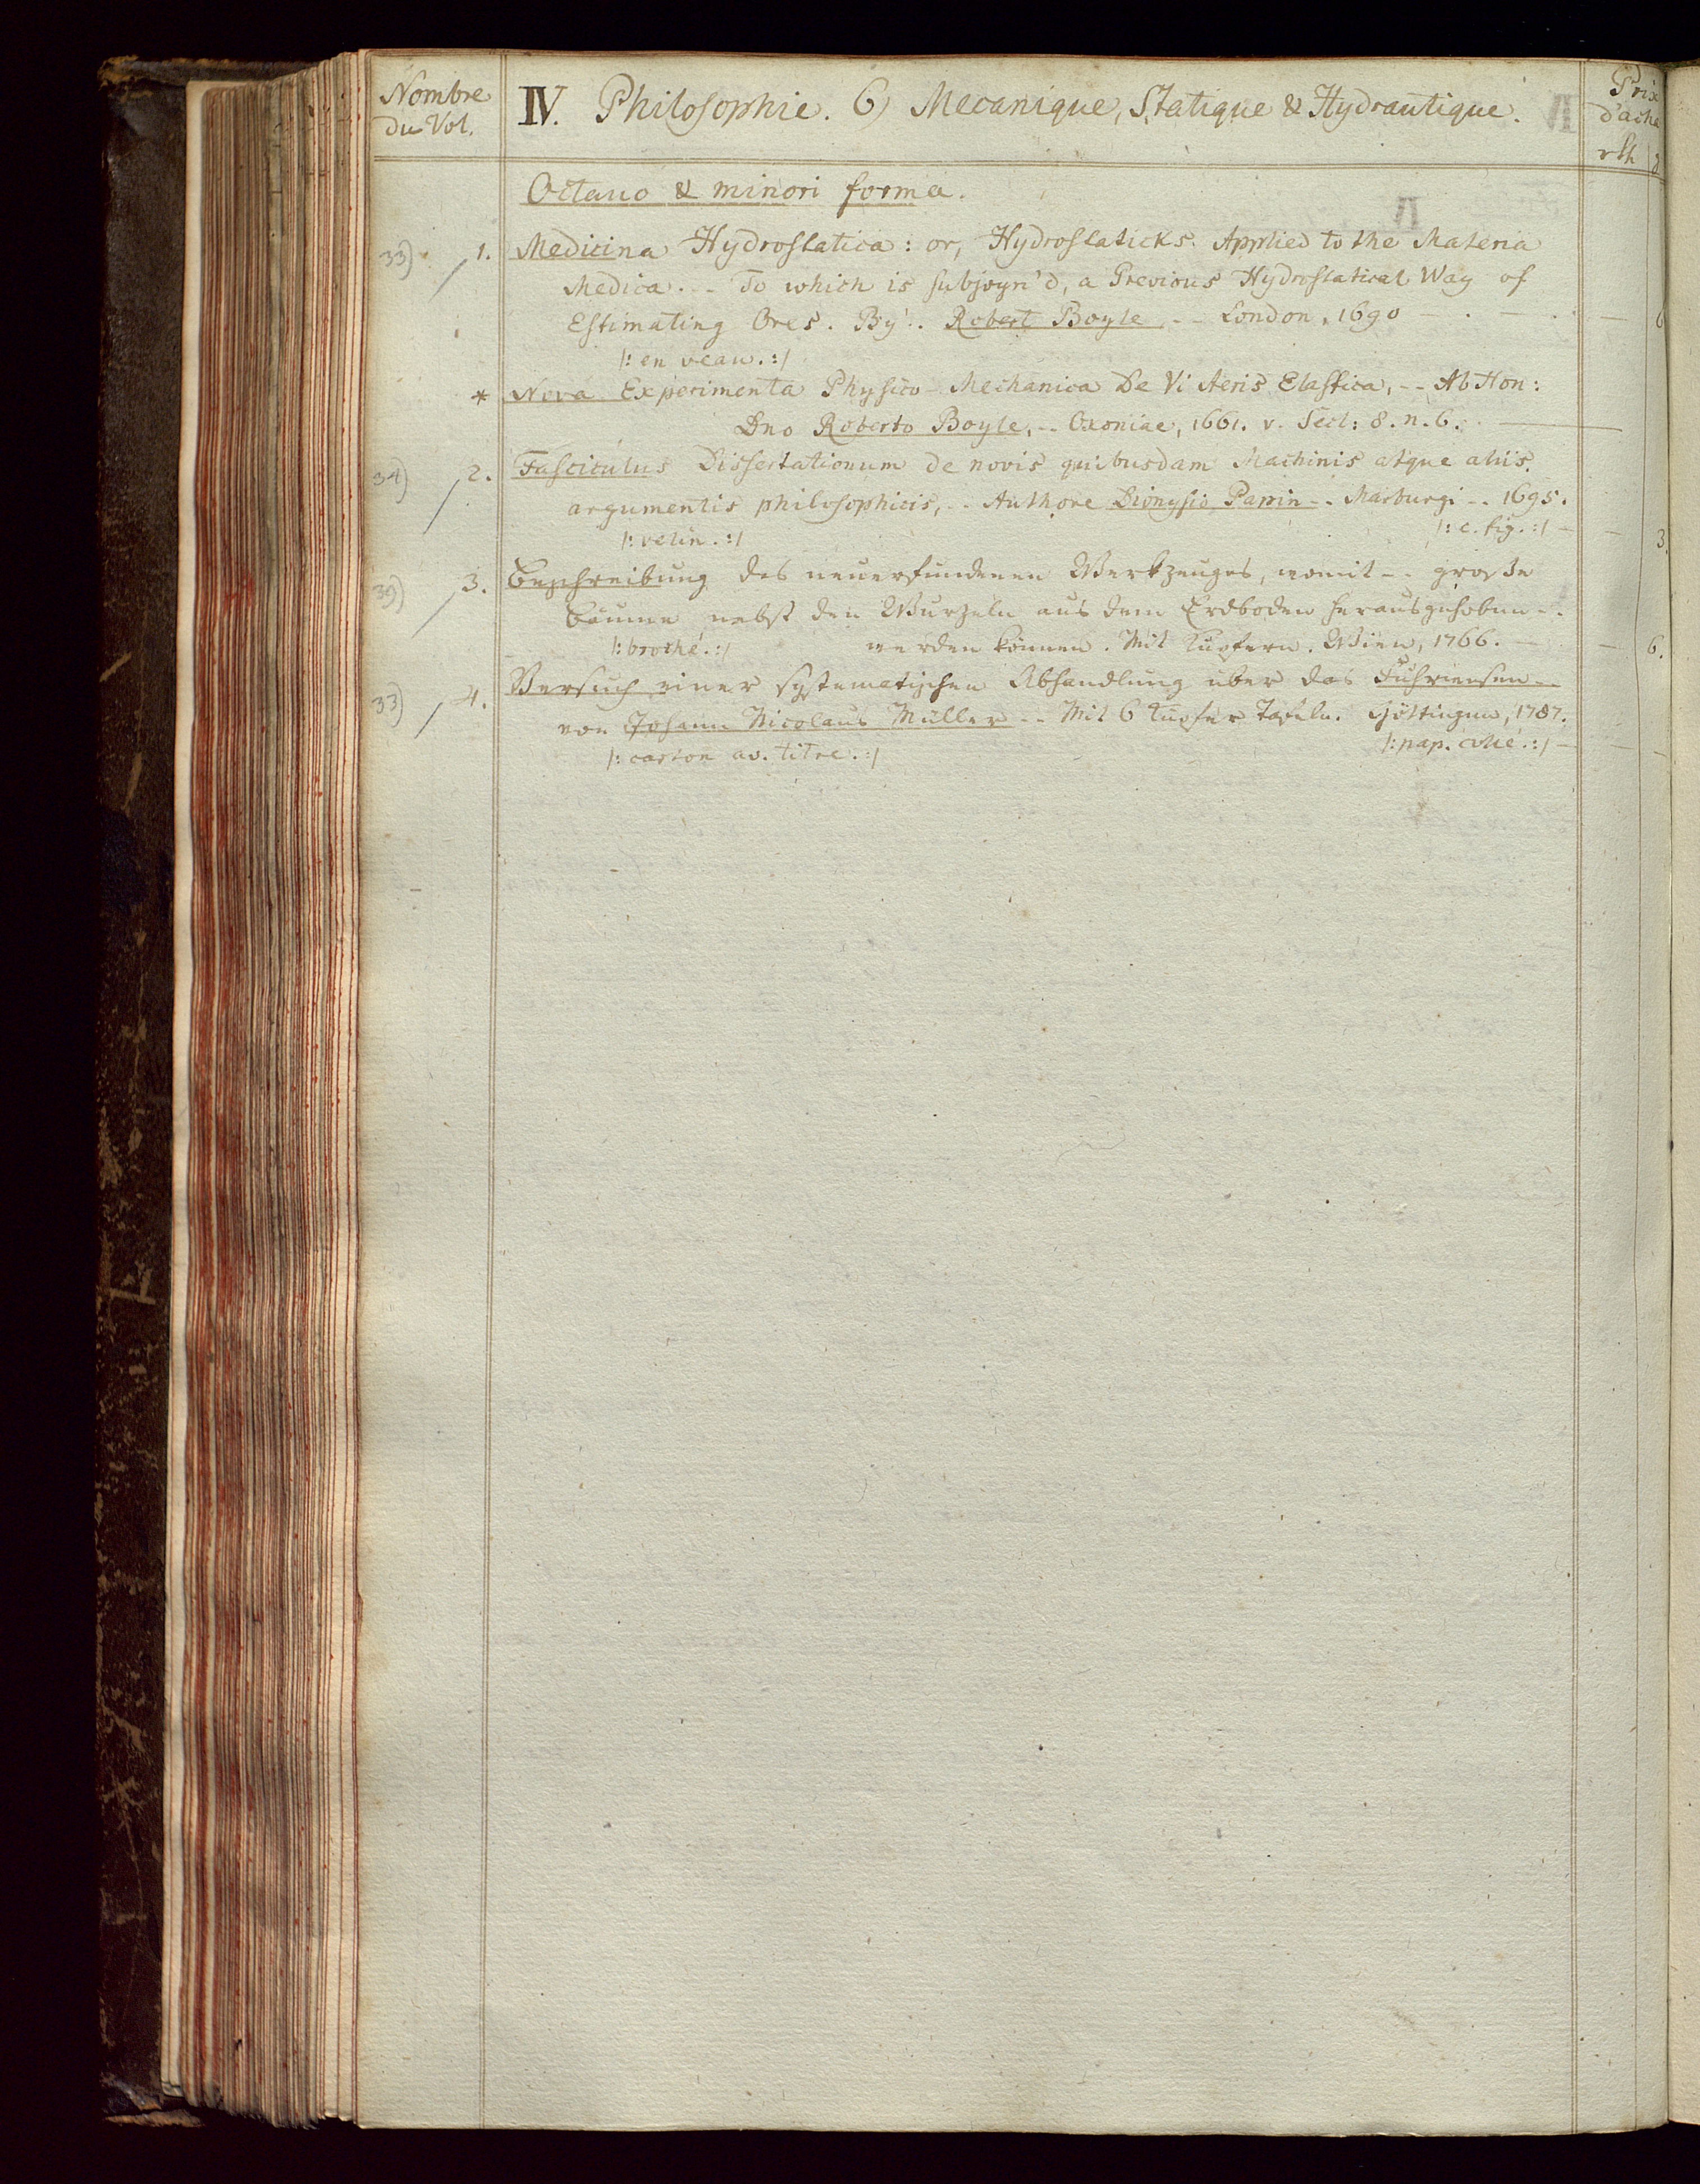 Nombre
du Vol.
IV. Philosophie. 6) Mecanique, Statique & Hydrautique.
Prix
d'acha
rth
Octavo & minori forma.
33) 1. Medicina Hydrostatica: or, Hydrostaticks. Applied to the Materia
Medica. -- To which is subjoyn'd, a Previous Hydrostatical Way of
Estimating Ores. By.. Robert Boyle, -- London, 1690
|: en veau. :|
* Nova Experimenta Physico-Mechanica De Vi Aeris Elastica, -- Ab Hon:
Dno Roberto Boyle, -- Oxoniae, 1661. v. Sect: 8. n. 6.
34) 2. Fasciculus Dissertationum de novis quibusdam Machinis atque aliis
argumentis philosophicis, -- Authore Dionysio Papin -- Marburgi -- 1695.
|: velin. :| |: c. fig. :| 3.
39) 3. Beschreibung des neuerfundenen Werkzeuges, womit -- große
Bäume nebst den Wurzeln aus dem Erdboden herausgehoben --
|: broché. :| werden können. Mit Kupfern. Wien, 1766. 6.
33) 4. Versuch einer systematischen Abhandlung über das
von Johann Nicolaus Müller -- Mit 6 Kupfer Tafeln. Göttingen, 1787.
|: carton av. titre. :| |: pap. collé. :|